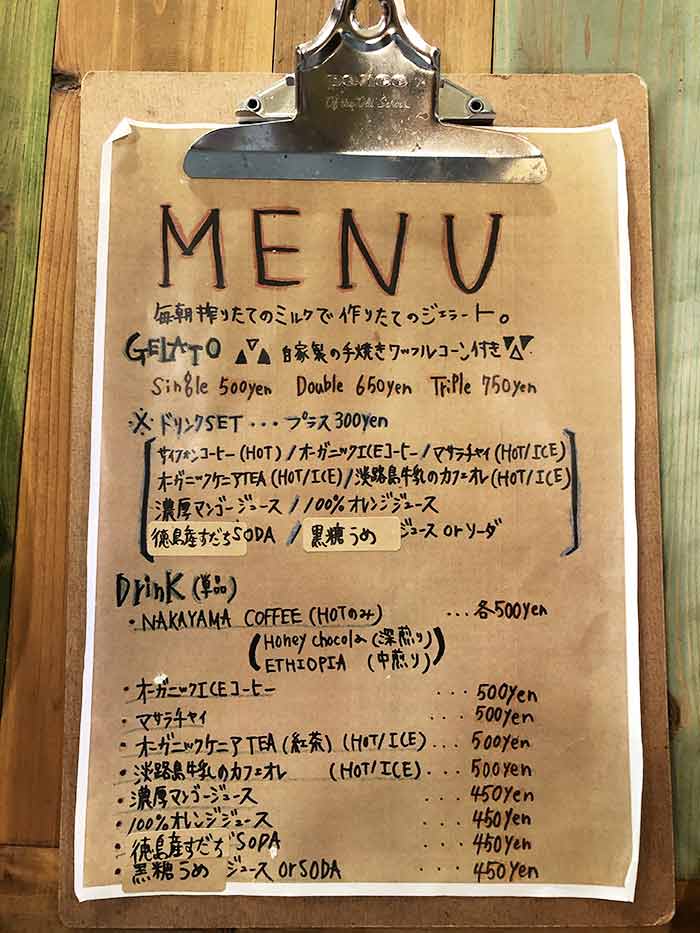 Of the Old School
MENU
毎朝搾りたてのミルクで作りたてのジェラート。
GELATO 自家製の手焼きワッフルコーン付き
Single 500yen Double 650yen Triple 750yen
※ドリンクSET・・・プラス300yen
サイフォンコーヒー(HOT)/オーガニックICEコーヒー/マサラチャイ(HOT/ICE)
オーガニックケニアTEA(HOT/ICE)/淡路島牛乳のカフェオレ(HOT/ICE)
濃厚マンゴージュース/100%オレンジジュース
徳島産すだちSODA/黒糖うめジュースorソーダ
Drink(単品)
・NAKAYAMA COFFEE(HOTのみ) ...各500yen
(Honey chocola(深煎り)
ETHIOPIA (中煎り))
・オーガニックICEコーヒー ... 500yen
・マサラチャイ ... 500yen
・オーガニックケニアTEA(紅茶)(HOT/ICE)... 500yen
・淡路島牛乳のカフェオレ (HOT/ICE)... 500yen
・濃厚マンゴージュース ... 450yen
・100%オレンジジュース ... 450yen
・徳島産すだちSODA ... 450yen
・黒糖うめジュースorSODA ... 450yen